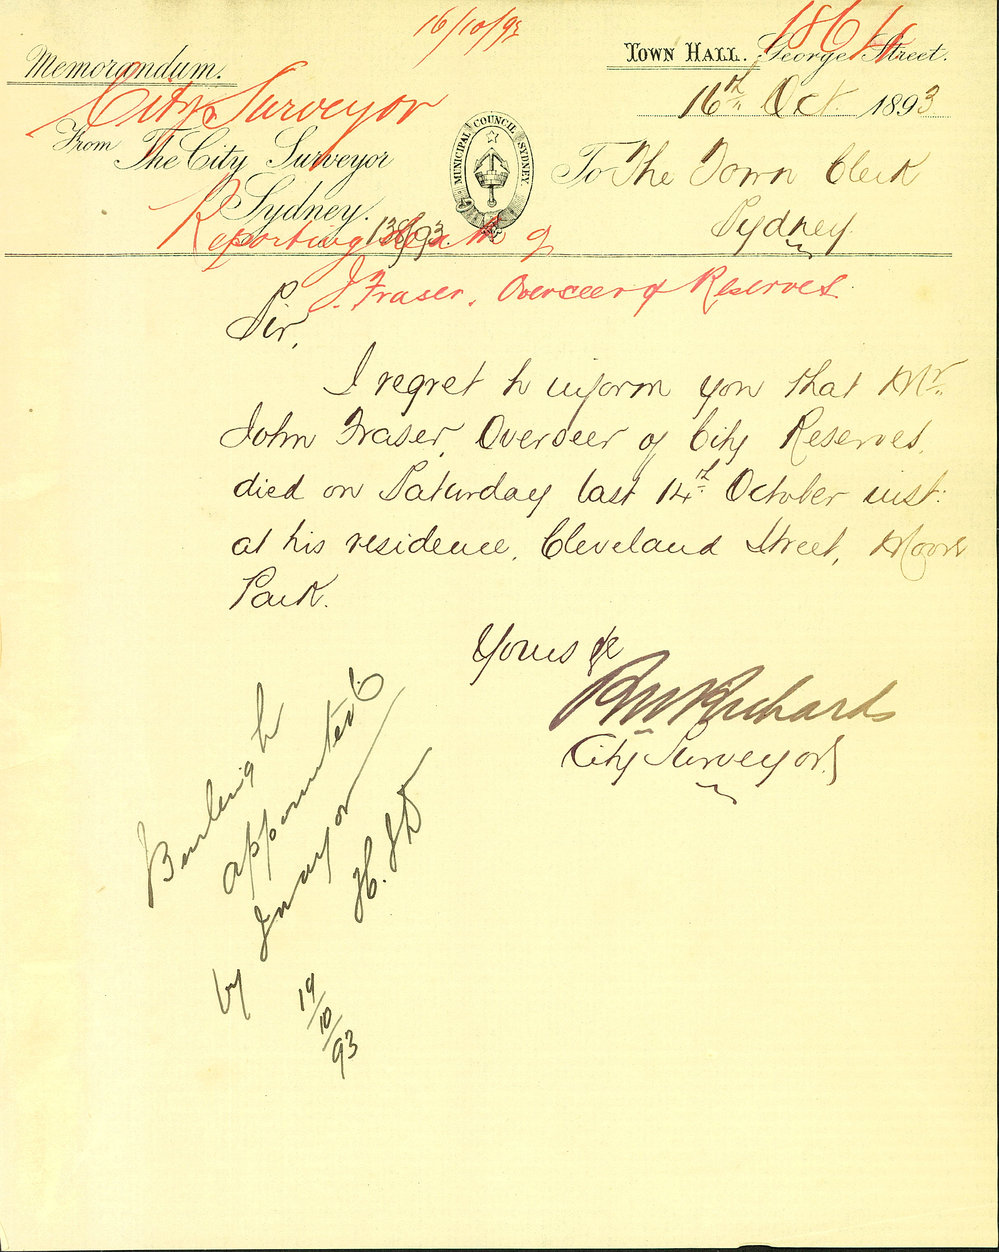 16/10/93
Memorandum.
TOWN HALL. George Street.
City Surveyor
16th Oct. 1893
From The City Surveyor
MUNICIPAL COUNCIL SYDNEY.
To The Town Clerk
Sydney.
Sydney.
Reporting death of
J. Fraser, Overseer of Reserves
Sir,
I regret to inform you that Mr.
John Fraser, Overseer of City Reserves,
died on Saturday last 14th October inst.
at his residence, Cleveland Street, Moore
Park.
Yours &c
Richards
City Surveyor
Burleigh
appointed
by mayor
19/10/93